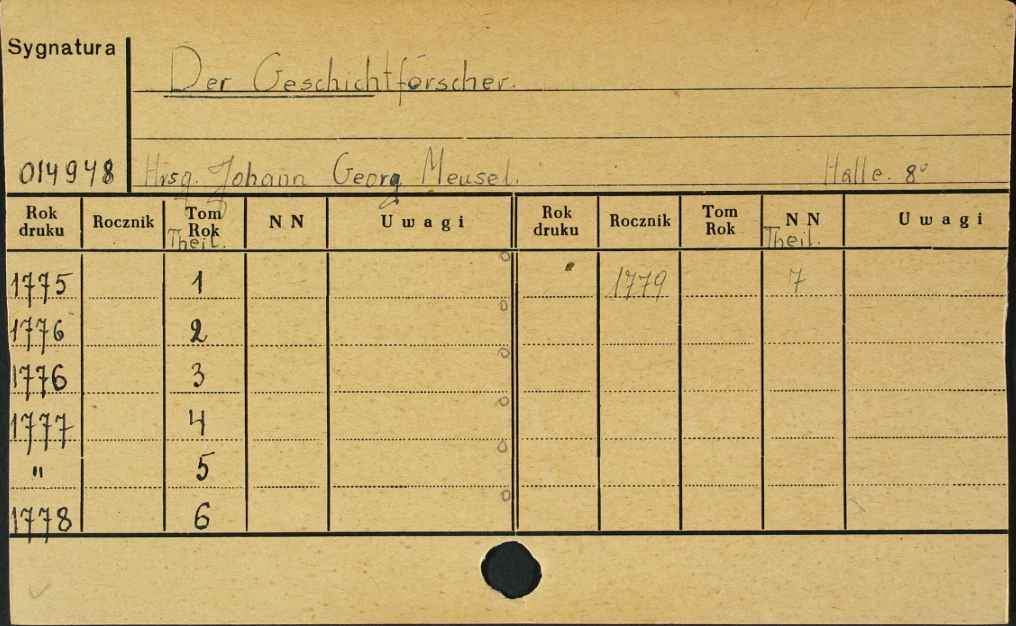 Sygnatura
Der Geschichtforscher.
014948 Hrsg. Johann Georg Meusel. Halle. 8°
Rok druku Rocznik Tom Rok Theil. NN Uwagi Rok druku Rocznik Tom Rok NN Theil. Uwagi
1775 1 1779 7
1776 2
1776 3
1777 4
" 5
1778 6